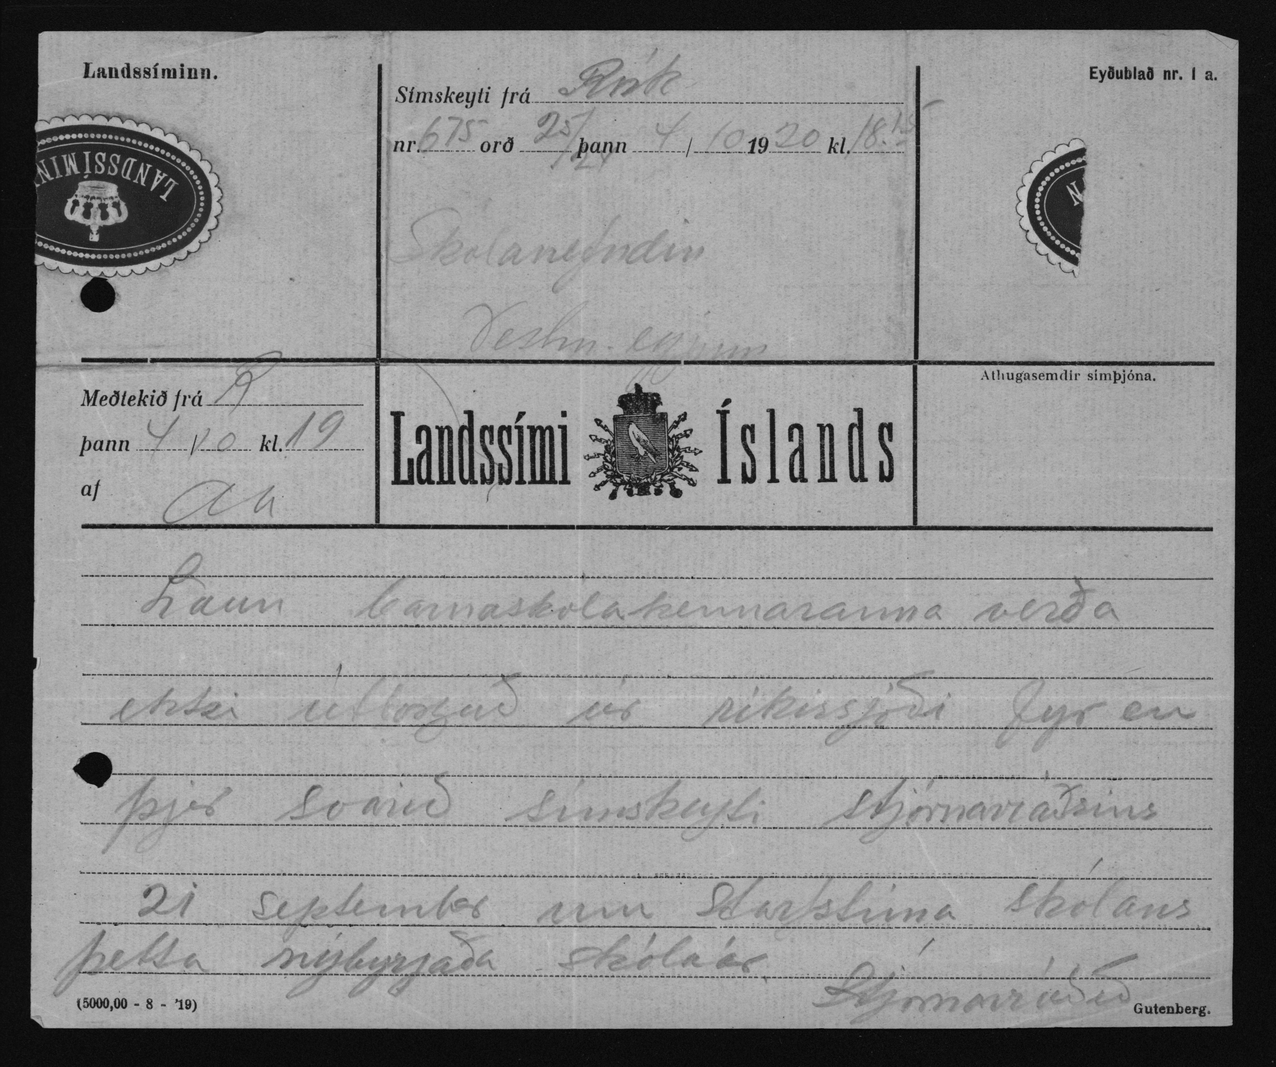 Landssíminn.
Eyðublað nr. 1 a.
Símskeyti frá Rvík
nr. 675 orð 25/21 þann 4/10 1920 kl. 18.15
LANDSSÍMINN
Skólanefndin
Vestm.eyjum
Meðtekið frá R
þann 4/10 kl. 19
af
Landssími Íslands
Athugasemdir símþjóna.
Laun barnaskolakennaranna verða
ekki útborguð úr ríkissjóði fyr en
þjer svarið símskeyti stjórnarráðsins
21 september um starfstíma skólans
þetta nýbyrjaða skólaár.
Stjórnarráðið
(5000,00 - 8 - '19)
Gutenberg.